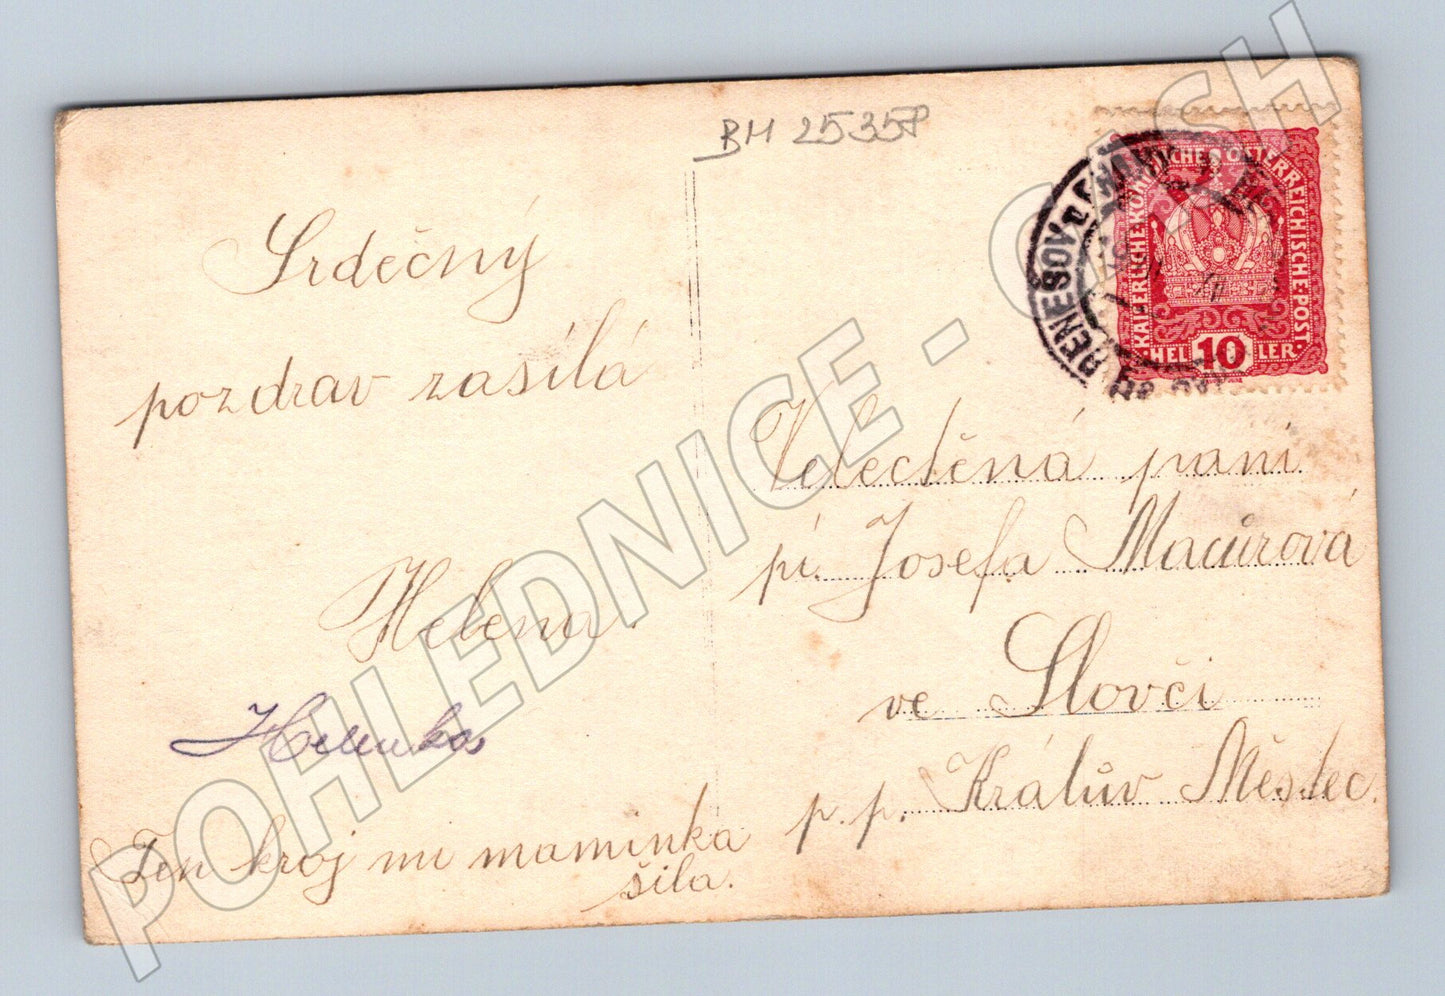 BM 2535P
Srdečný
pozdrav zasílá
Helena.
Helenka
Ten kroj mi maminka
šila.
KAISERLICHE KÖNIGLICHE ÖSTERREICHISCHE POST
HEL 10 LER
BENEŠOV
Velectěná paní
pí. Josefa Macúrová
ve Slovči
p. p. Králův Městec.
POHLEDNICE - CASH